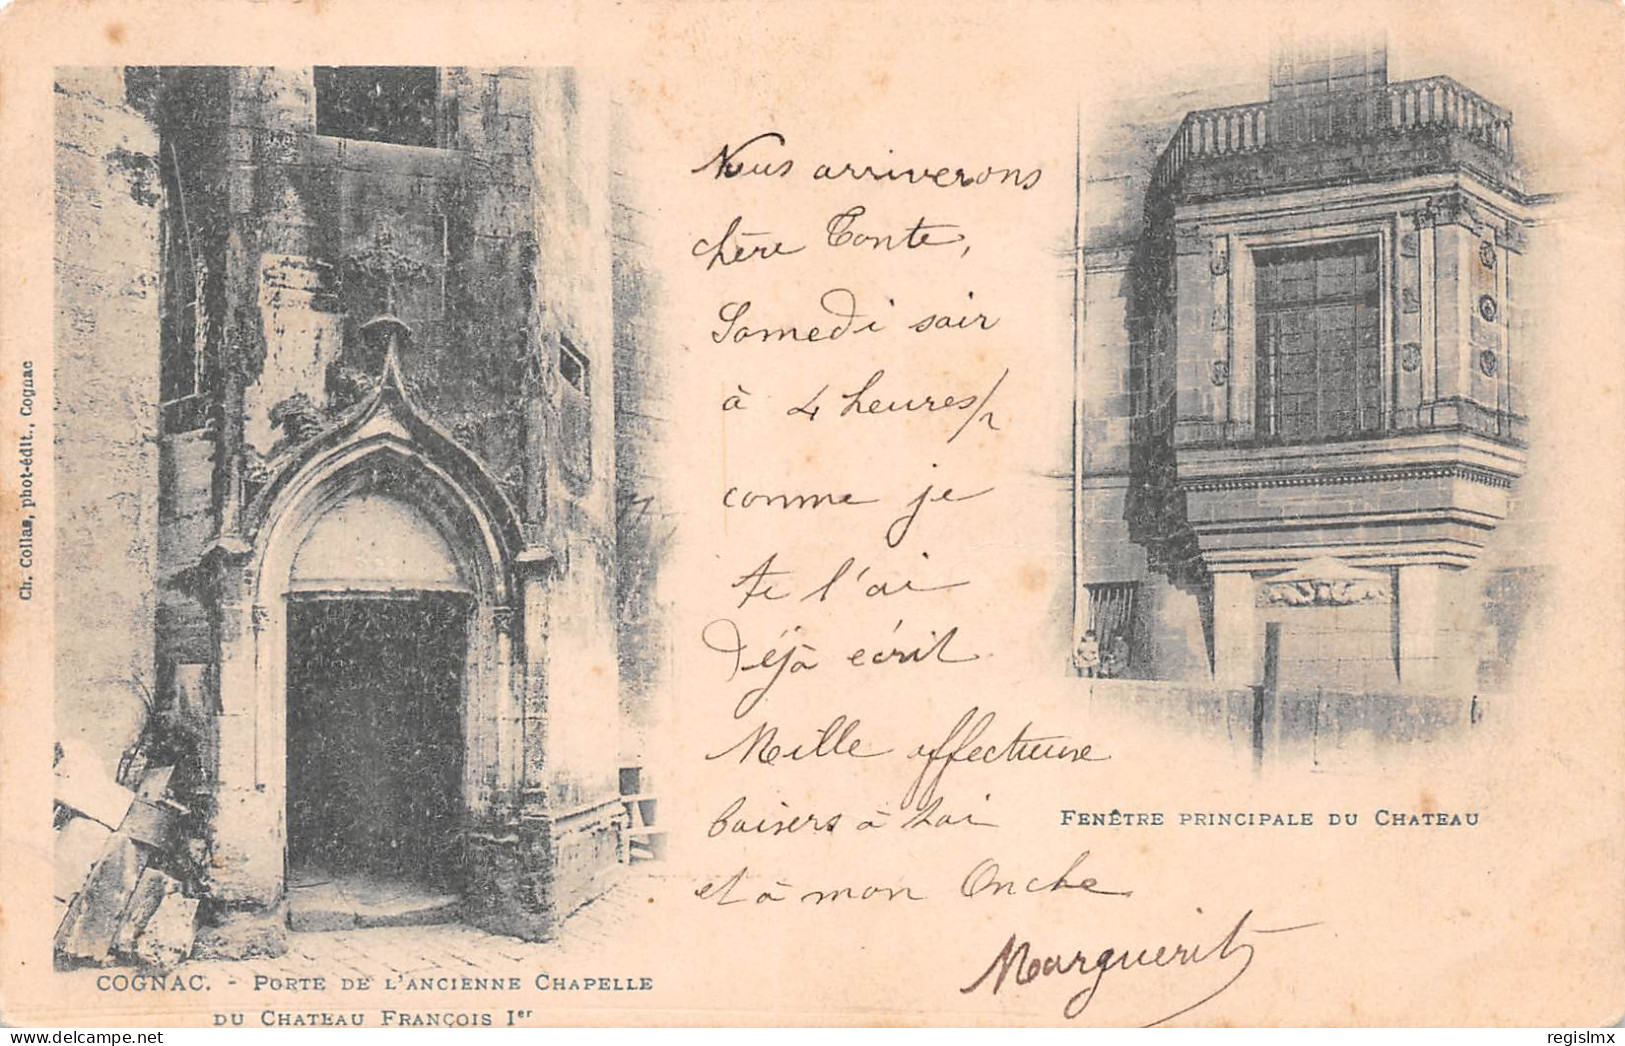 Ch. Collas, phot-édit., Cognac
Nous arriverons
chère Tante,
Samedi soir
à 4 heures 1/2
comme je
te l'ai
déjà écrit
Mille affectueux
baisers à toi
et à mon Oncle
Marguerite
FENÊTRE PRINCIPALE DU CHATEAU
COGNAC. - PORTE DE L'ANCIENNE CHAPELLE
DU CHATEAU FRANÇOIS Ier
regislmx